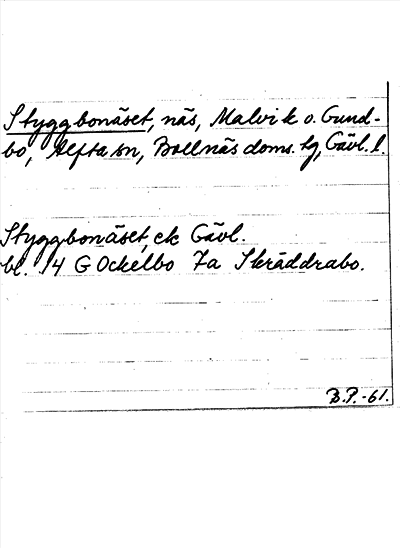 Styggbonäset, näs, Malvik o. Gund-
bo, Alfta sn, Bollnäs doms. tg, Gävl. l.
Styggbonäset ek Gävl.
bl. 14 G Ockelbo 7a Skräddrabo.
B.P.-61.